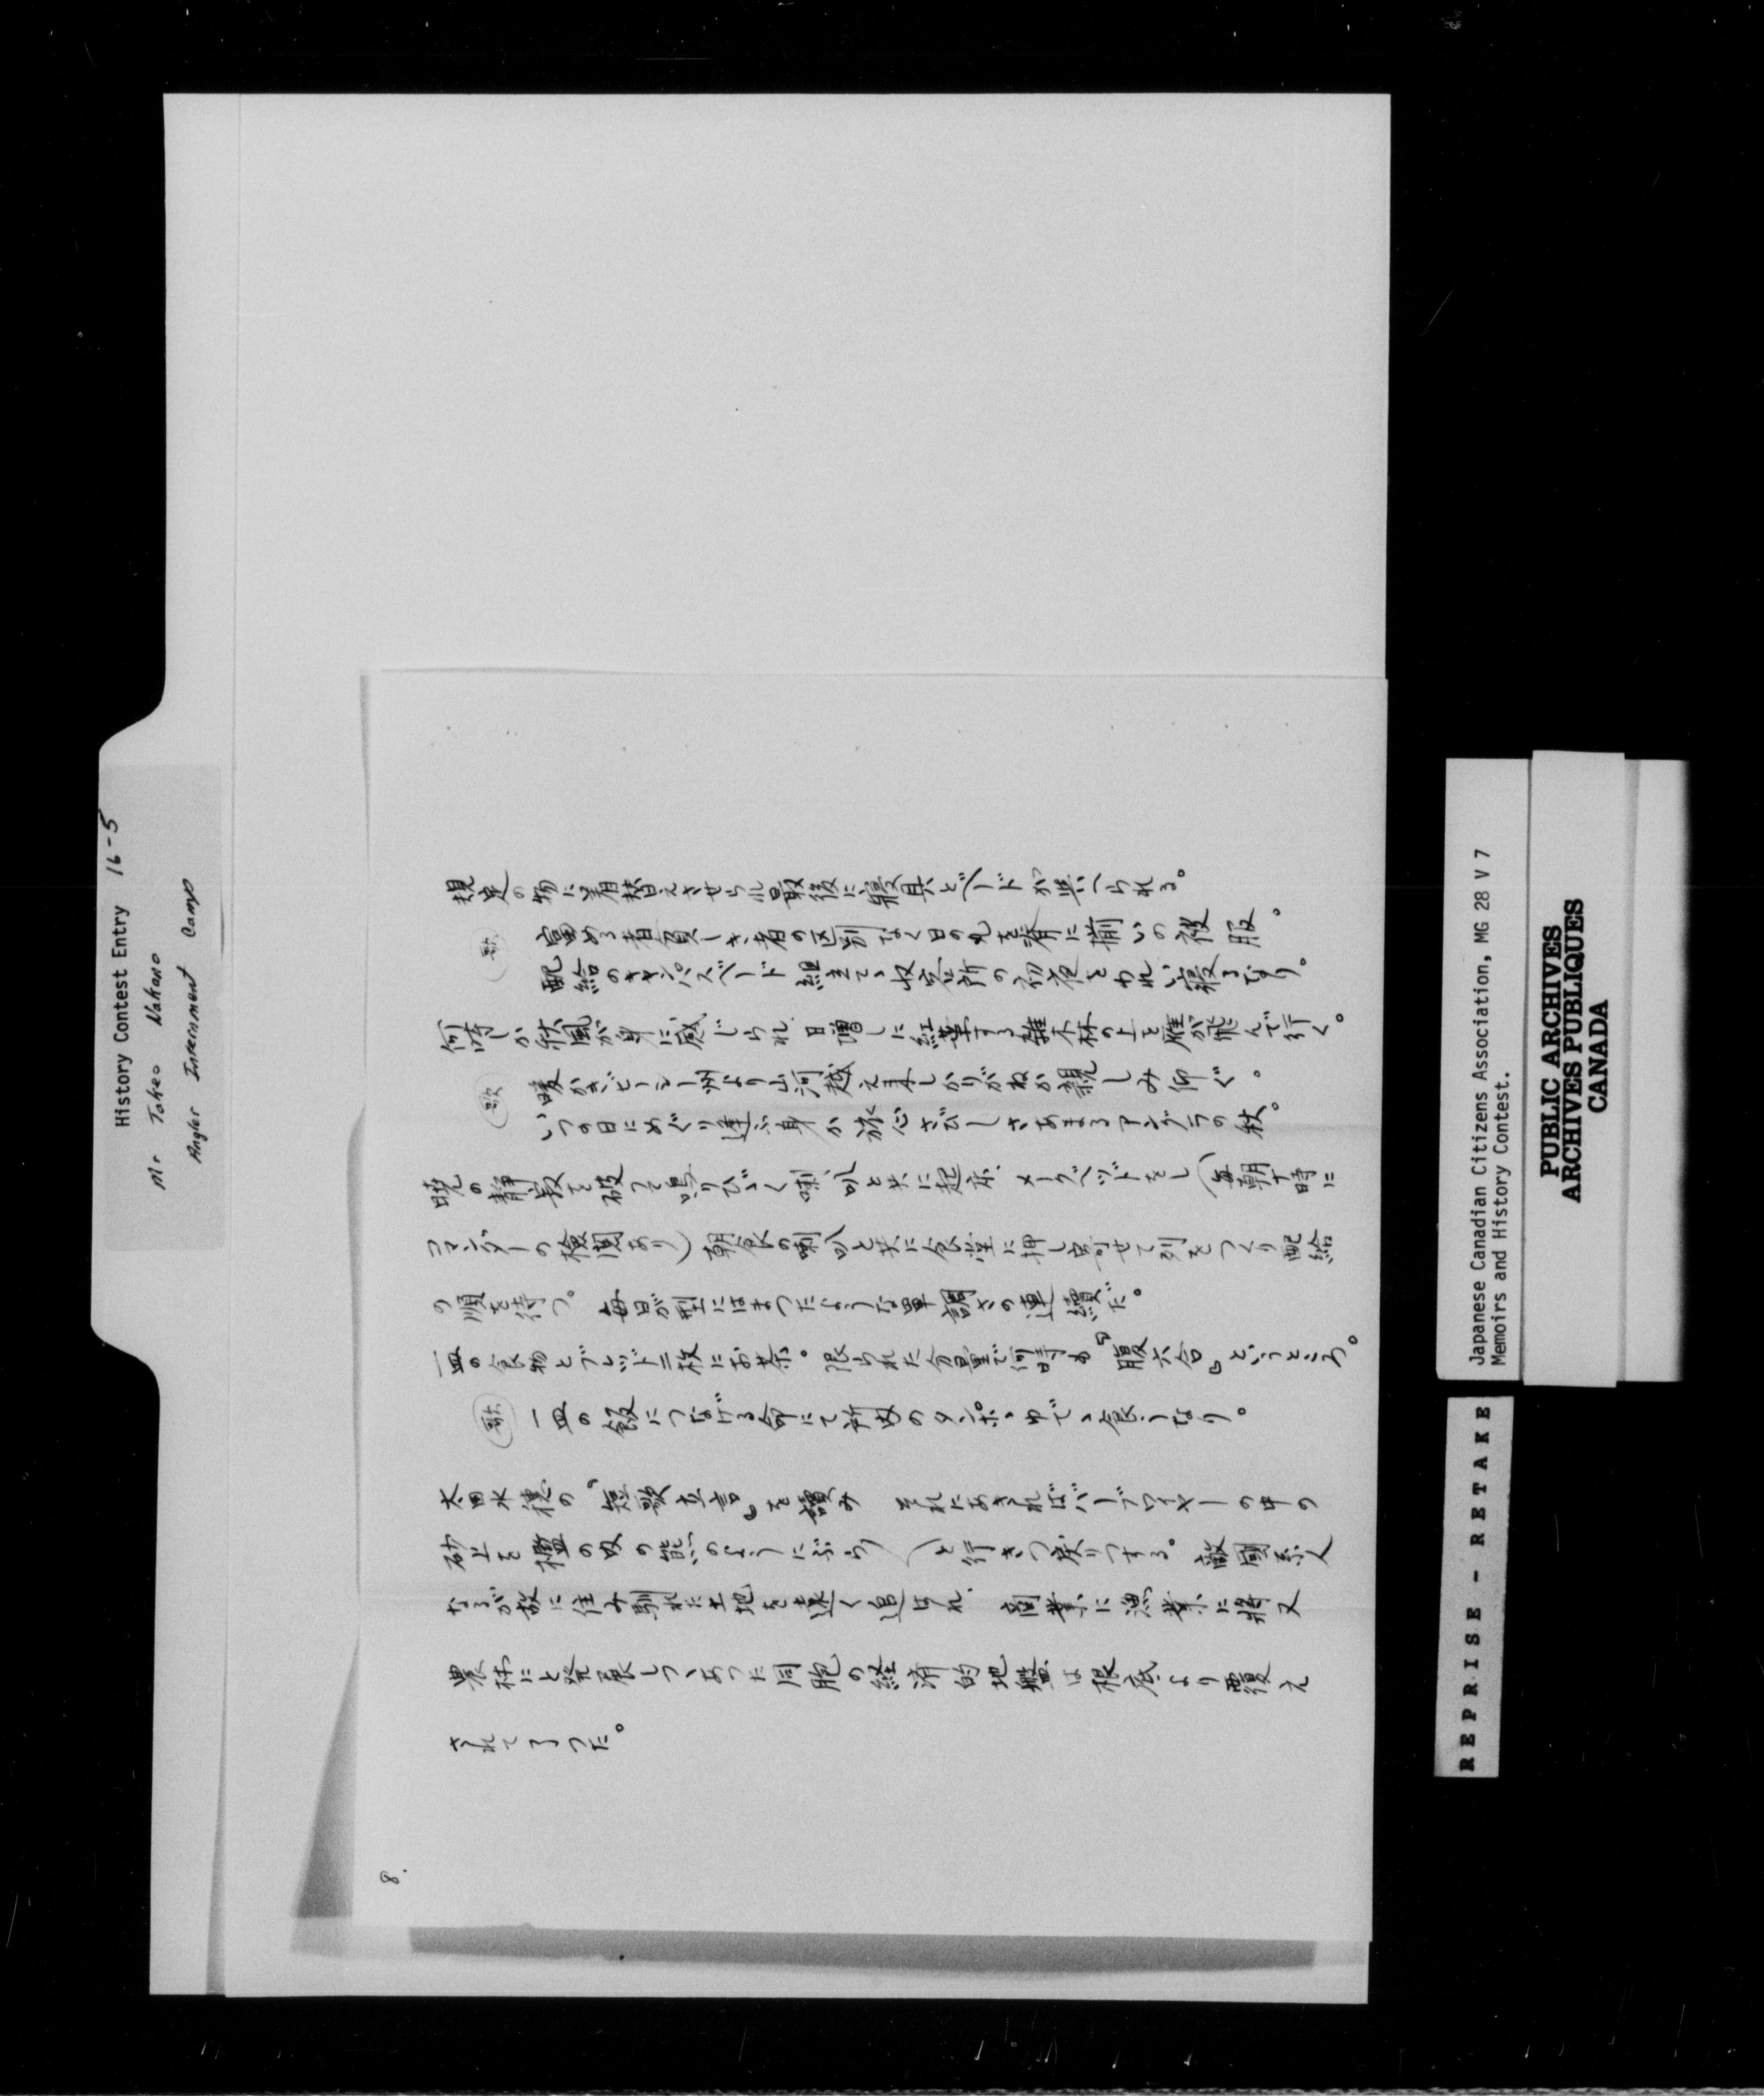 History Contest Entry 16-5
Mr Takeo Nakano
Angler Internment Camp
規定の物に着替えさせられ最後に寝具とベードが与へられる。
歌 富める者貧しき者の区別なく日の丸を背に揃いの被服。
配給のキャンバスベード組立てゝ収容所の初夜をわれ寝るなり。
何時しか秋風が身に感じられ 日増しに紅葉する雑木林の上を雁が飛んで行く。
歌 暖かきビーシー州より山河越え来しかりがねか親しみ仰ぐ。
いつの日にめぐり逢ふ身か旅心さびしさあまるアングラの秋。
暁の静寂を破って鳴りひゞく喇叭と共に起床、メークベッドをし(毎朝十時に
コマンダーの検閲あり)朝食の喇叭と共に食堂に押し寄せて列をつくり配給
の順を待つ。 毎日が型にはまったような単調さの連続だ。
一皿の食物とブレッド二枚にお茶。限られた分量で何時も『腹六合』というところ。
歌 一皿の飯につなげる命にて柵内のタンポゝゆでゝ食うなり。
太田水穂の『短歌立言』を読み それにあきればバーブワイヤーの中の
砂上を檻の内の熊のようにぶら〱と行きつ戻りつする。敵國系人
なるが故に住み馴れた土地を遠く追はれ、商業に漁業に将又
農林にと発展しつゝあった同胞の経済的地盤は根底より覆え
されて了った。
8.
Japanese Canadian Citizens Association, MG 28 V 7
Memoirs and History Contest.
PUBLIC ARCHIVES
ARCHIVES PUBLIQUES
CANADA
REPRISE - RETAKE